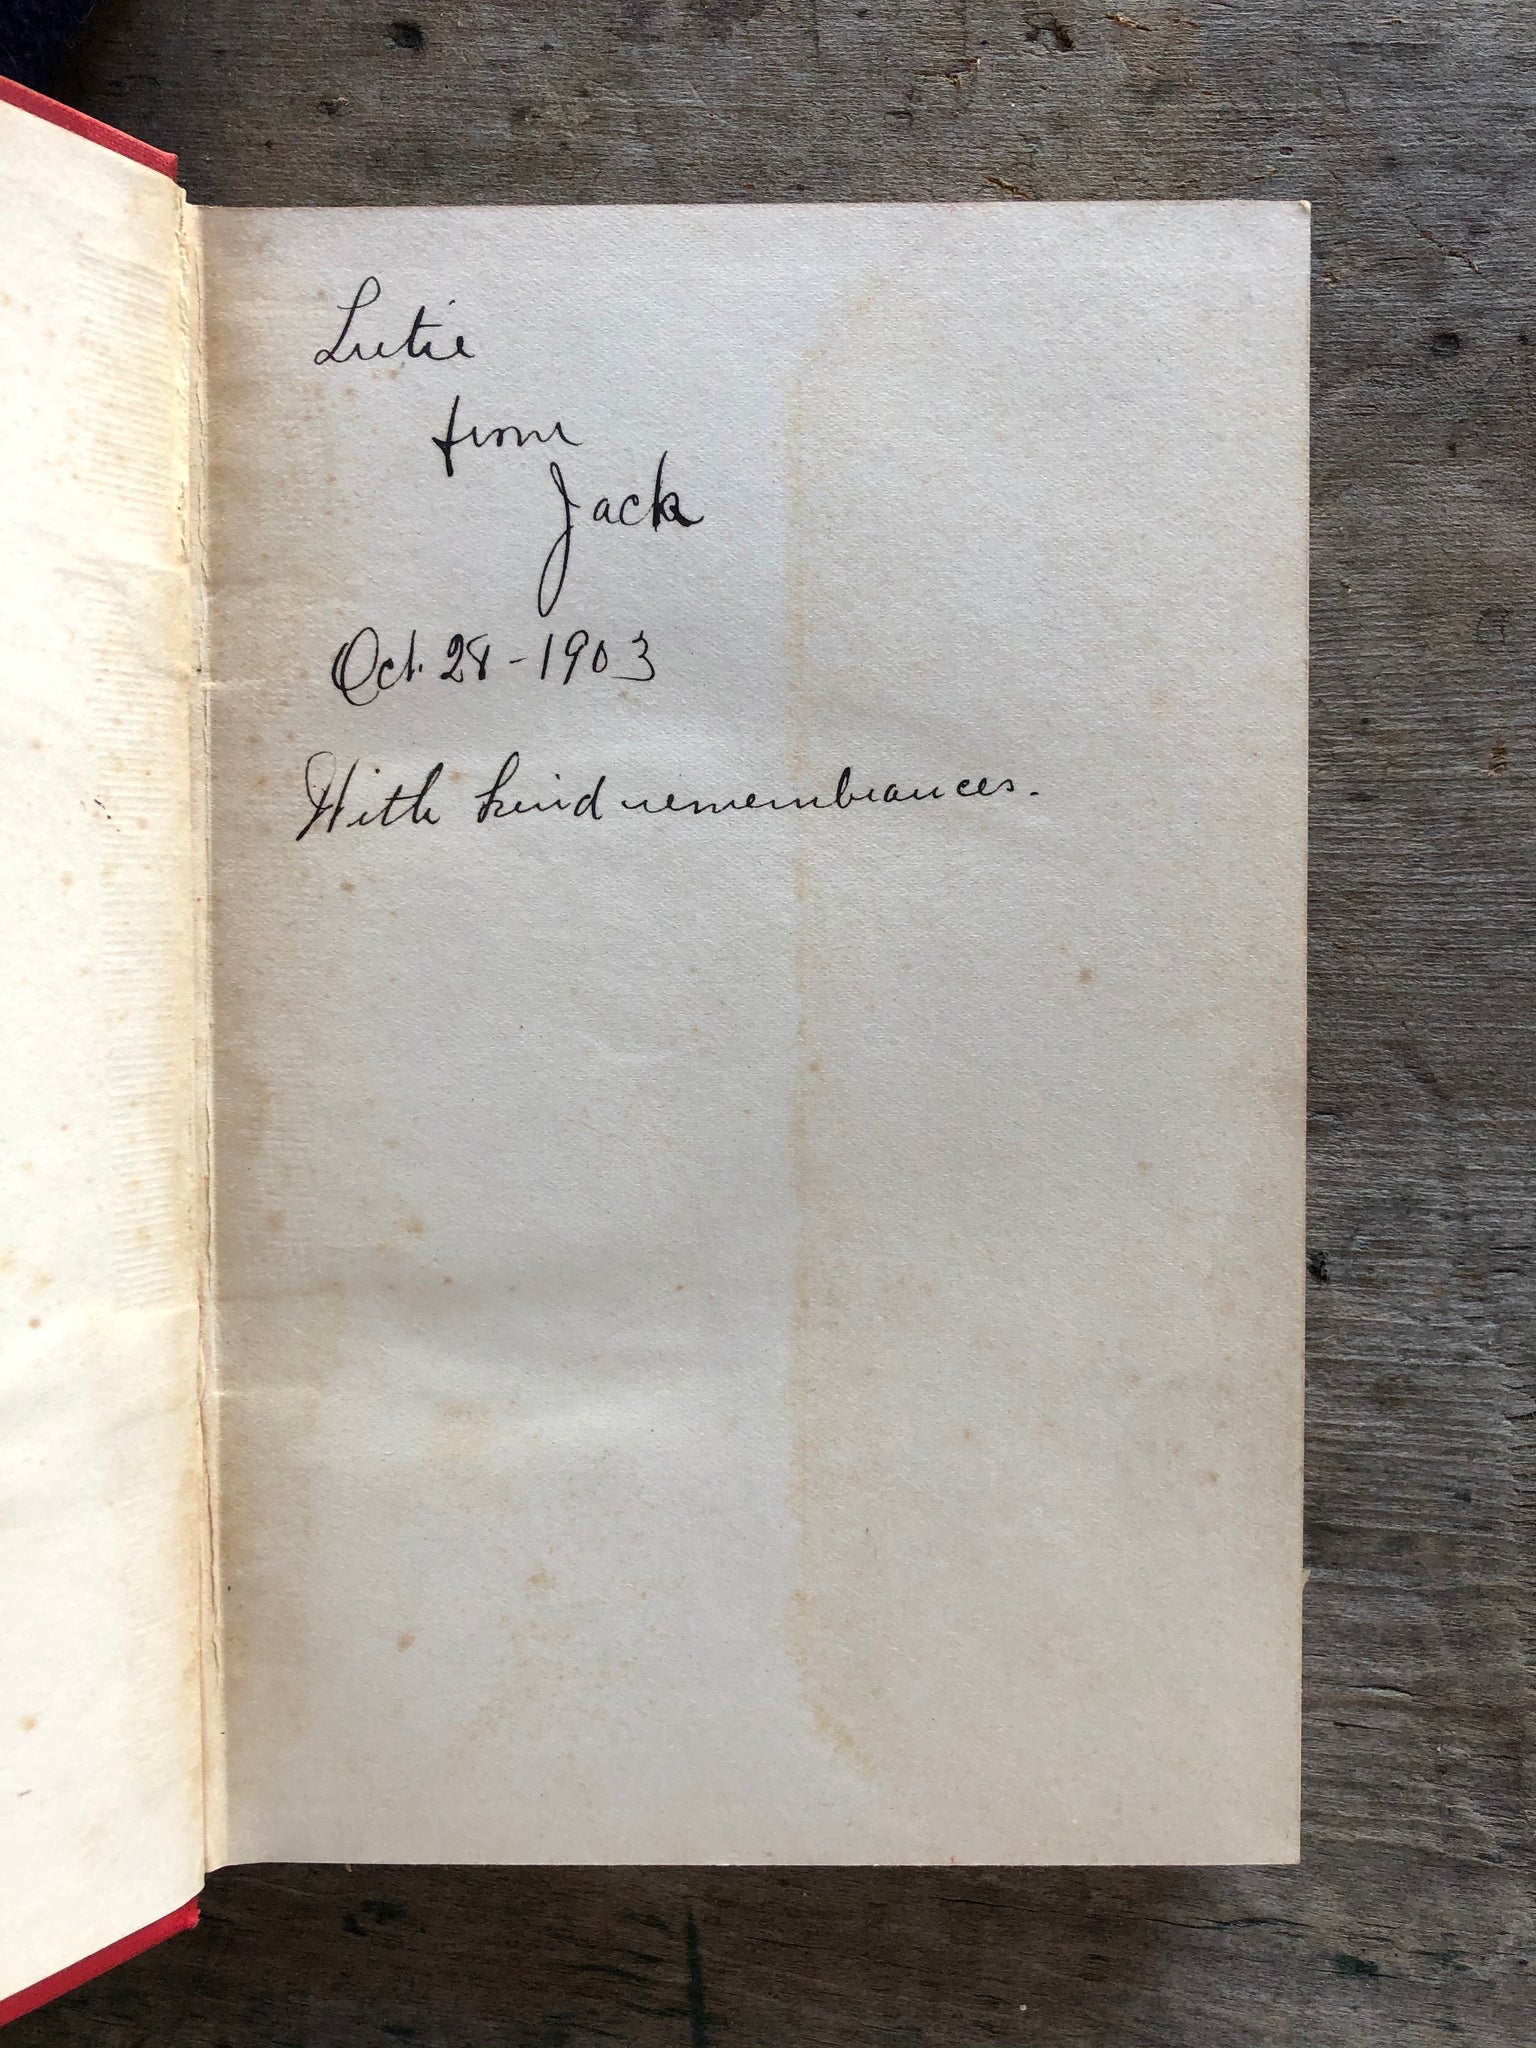 Lutie
from
Jack
Oct. 28-1903
With kind remembrances.